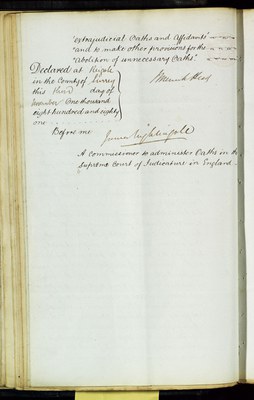 "extrajudicial Oaths and Affidavits"
"and to make other provisions for the
"abolition of unnecessary Oaths".
Declared at Reigate
in the County of Surrey
this Third day of
November One thousand
eight hundred and eighty
one
Before me
Nightingale
A Commissioner to administer Oaths in the
Supreme Court of Judicature in England